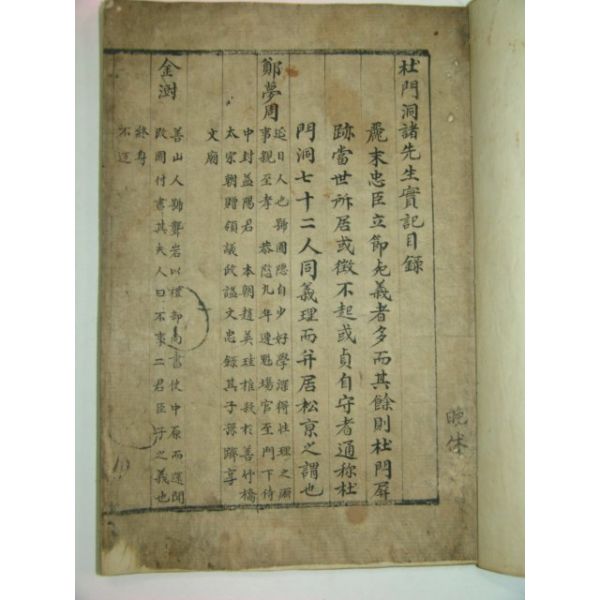 杜門洞諸先生實記目錄
麗末忠臣立節死義者多而其餘則杜門屏
跡當世所居或徵不起或貞自守者通称杜
門洞七十二人同義理而并居松京之謂也
鄭夢周
延日人也號圃隱自少好學深得性理之源
事親至孝恭愍九年連魁場官至門下侍
中封益陽君 本朝趙英珪椎殺於善竹橋
太宗朝贈領議政謚文忠錄其子孫躋享
文廟
金澍
善山人號籠岩以禮部尚書使中原而還聞
改國付書其夫人曰不事二君臣子之義也
終身
不返
晚